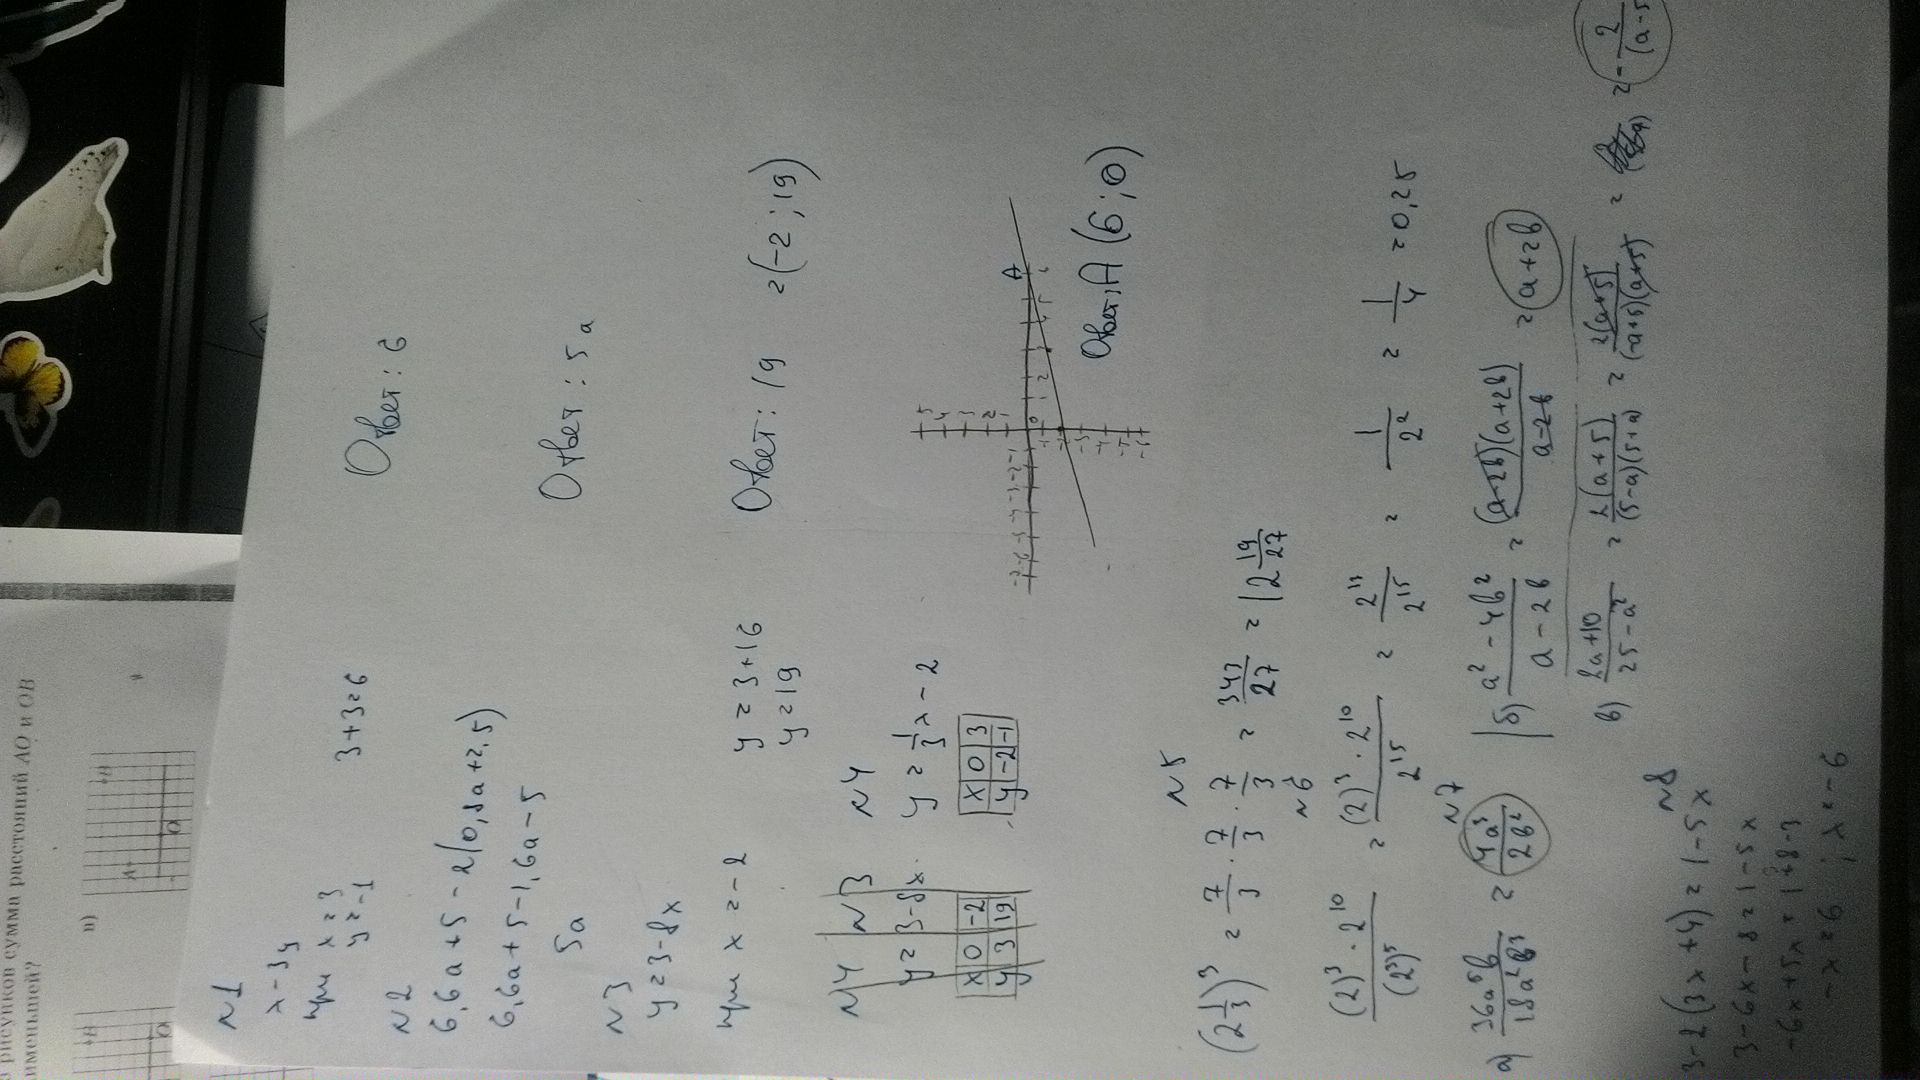 из рисунков сумма расстояний AO и OB
наименьшей?
в)
A
B
O
B
O
N1
x - 3y
при x = 3
y = -1
3+3=6
Ответ: 6
N2
6,6a + 5 - 2(0,8a + 2,5)
6,6a + 5 - 1,6a - 5
5a
Ответ: 5a
N3
y = 3 - 8x
при x = -2
y = 3 + 16
y = 19
Ответ: 19 = (-2; 19)
N4 N3
y = 3 - 8x
x 0 -2
y 3 19
N4
y = 1/3 x - 2
x 0 3
y -2 -1
A
Ответ: A (6; 0)
N5
(2 1/3)³ = 7/3 · 7/3 · 7/3 = 343/27 = 12 19/27
N6
(2)³ · 2¹⁰ / (2³)⁵ = (2)³ · 2¹⁰ / 2¹⁵ = 2¹³/2¹⁵ = 1/2² = 1/4 = 0,25
N7
а) 36a⁵b / 18a²b³ = 4a³/2b²
б) a² - 4b² / a - 2b = (a-2b)(a+2b) / a-2b = a+2b
в) 2a+10 / 25-a² = 2(a+5) / (5-a)(5+a) = 2(a+5) / (-a+5)(a+5) = = - 2/(a-5
N8
3 - 2(3x + 4) = 1 - 5x
3 - 6x - 8 = 1 - 5x
-6x + 5x = 1 + 8 - 3
-x = 6 ; x = -6